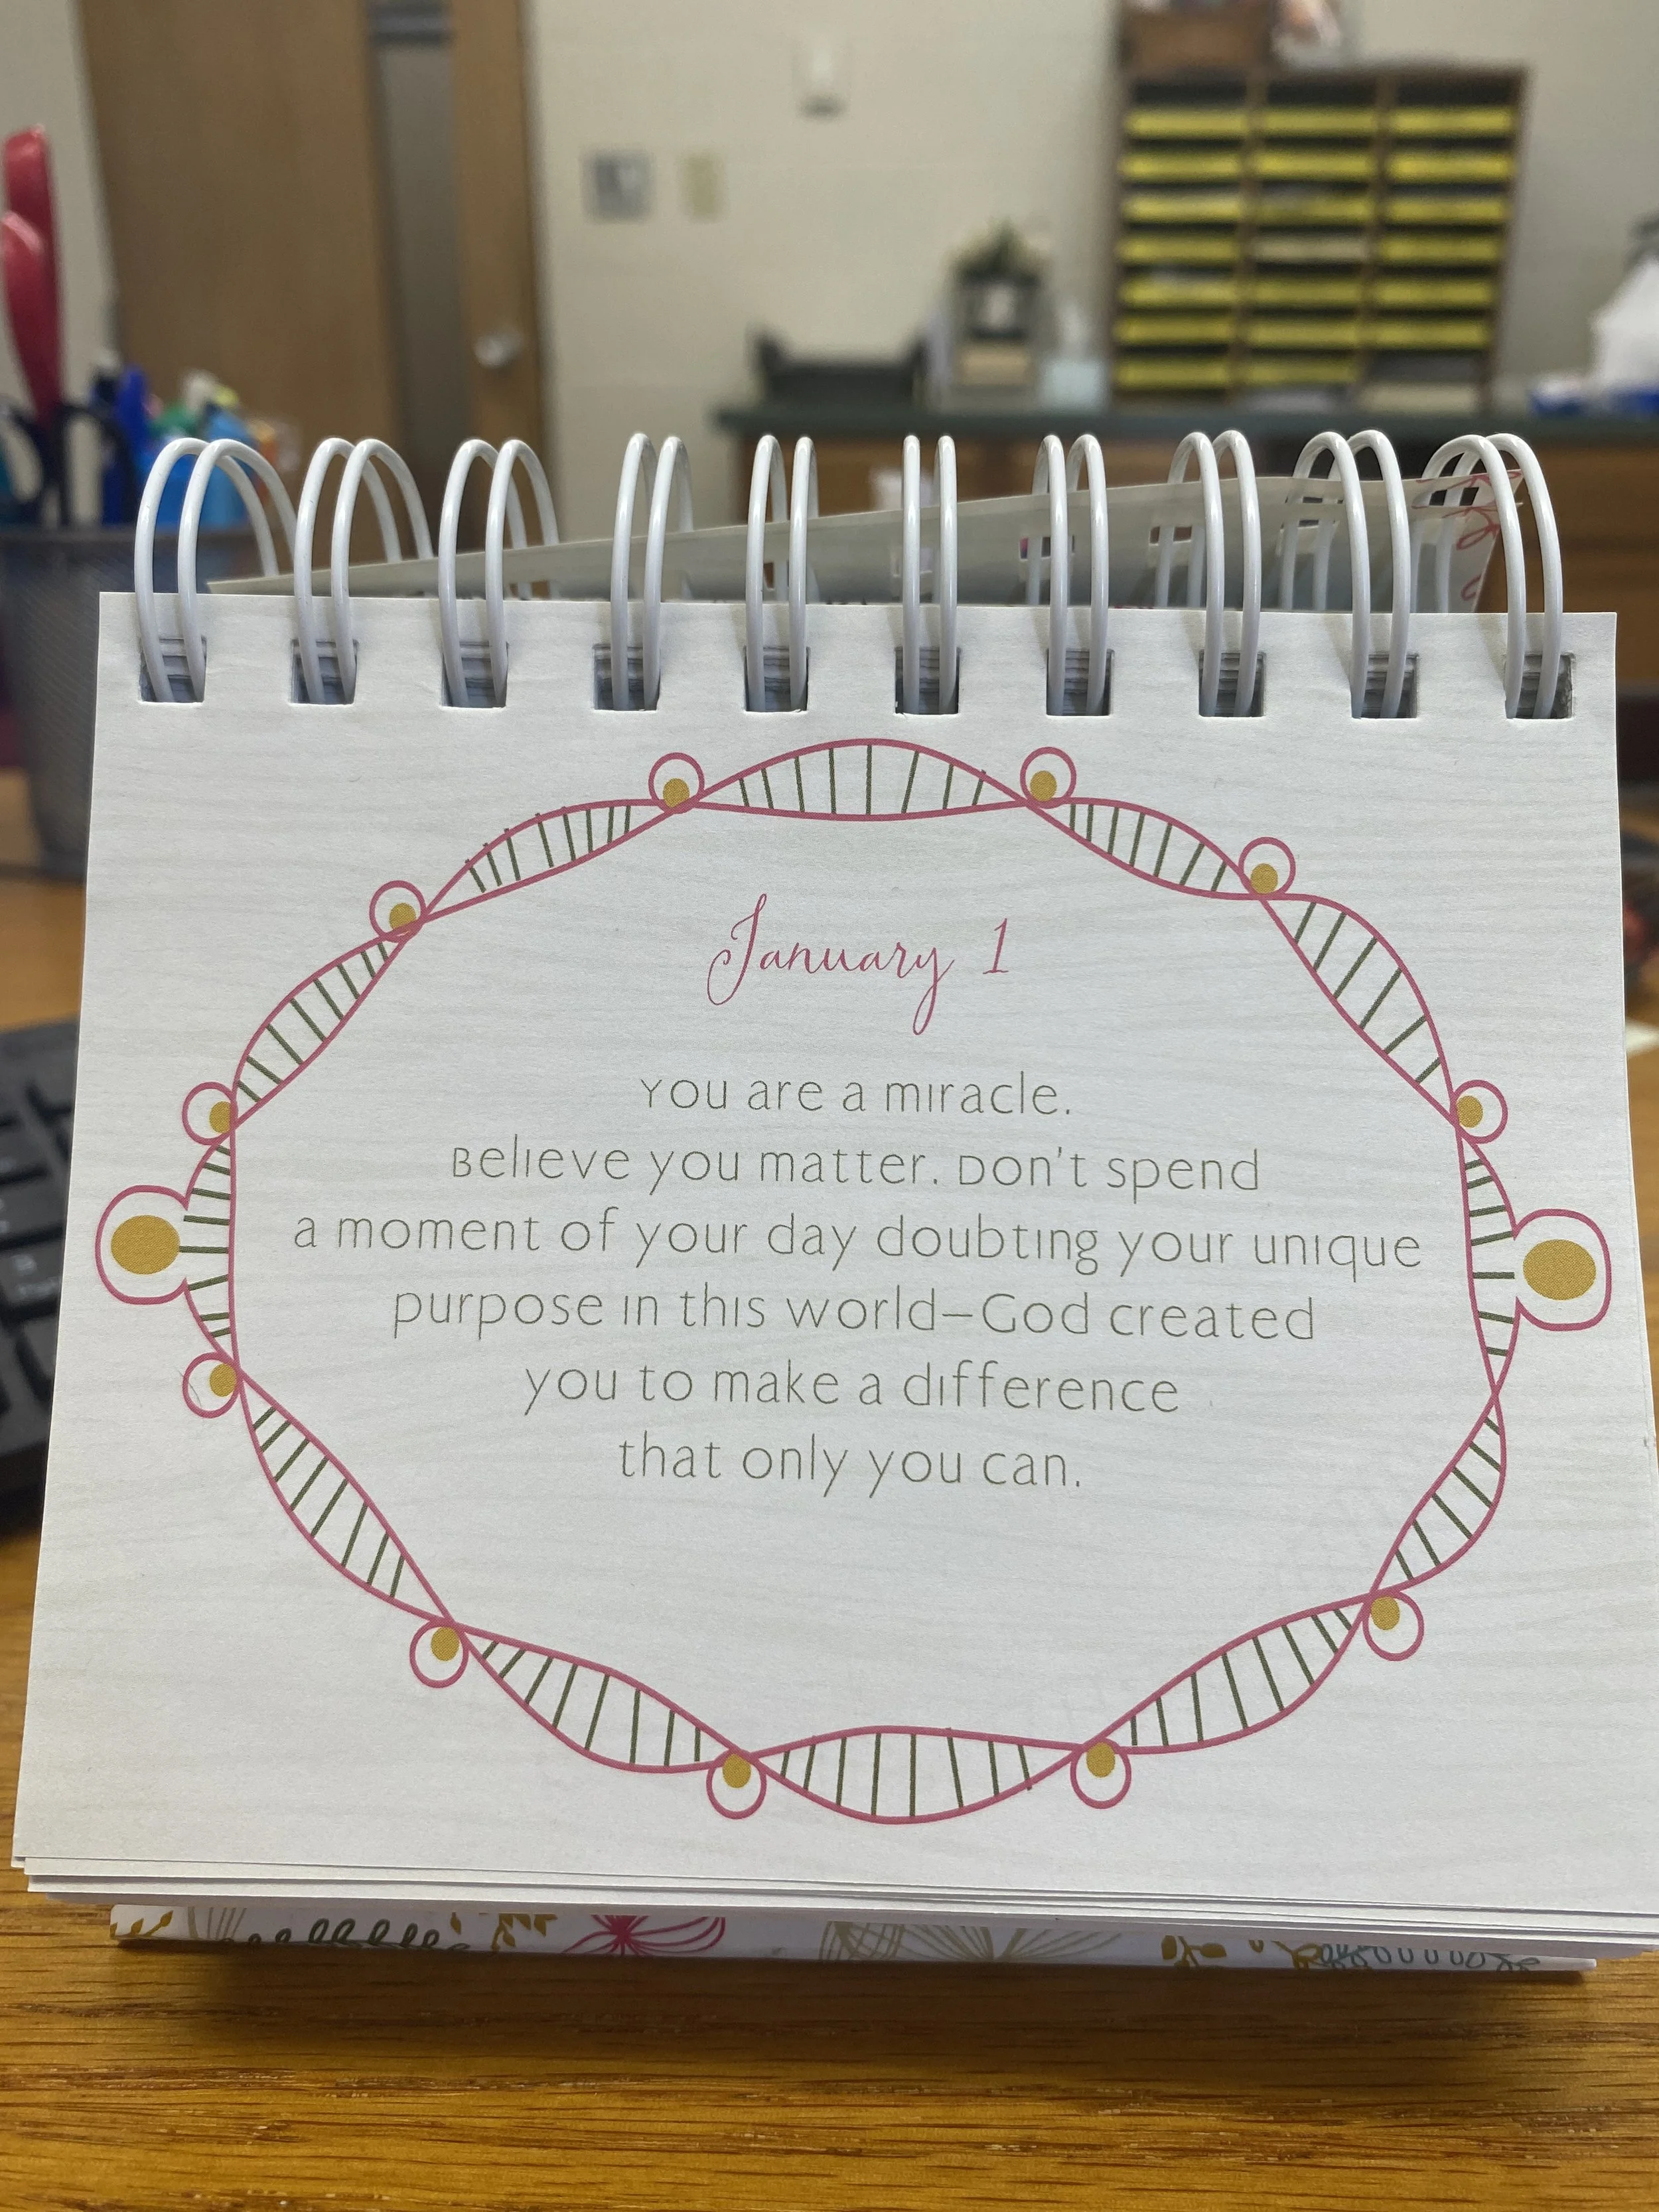 January 1
You are a miracle.
Believe you matter. Don't spend
a moment of your day doubting your unique
purpose in this world—God created
you to make a difference
that only you can.